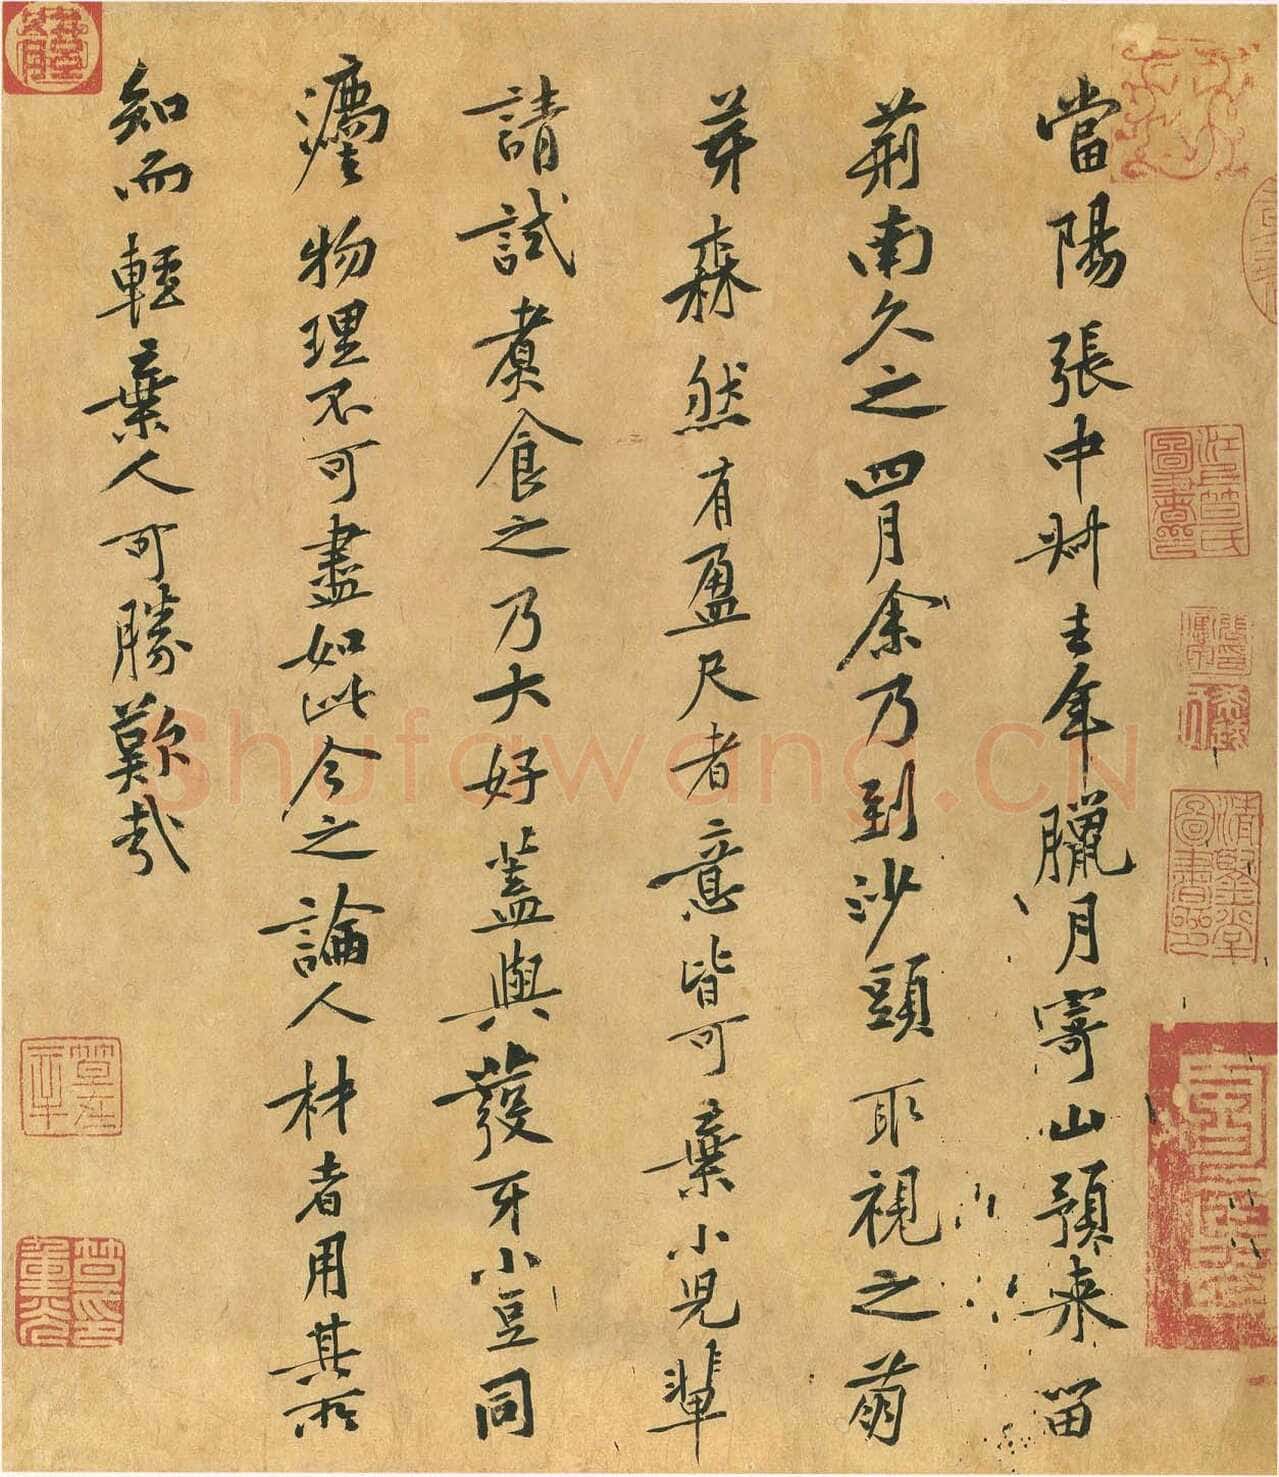 當陽張中叔去年臘月寄山預來留
荊南久之四月余乃到沙頭取視之萌
芽森然有盈尺者意皆可棄小兒輩
請試煮食之乃大好蓋與發牙小豆同
法物理不可盡如此今之論人材者用其所
知而輕棄人可勝歎哉
Shufawang.CN